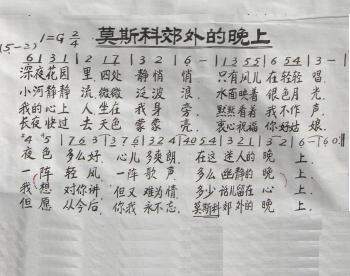 (5-2) 1=G 2/4 莫斯科郊外的晚上
6131 | 2 17 | 32 | 6- | 1355 | 654 | 3- |
深夜花园 里,四处 静悄 悄 只有风儿 在轻轻 唱,
小河静静 流微微 泛波 浪, 水面映着 银色月 光,
我的心上 人坐在 我身 旁, 默默看着 我不作 声,
长夜快过 去天色 蒙蒙 亮, 衷心祝福 你好姑 娘,
夜色 多么好, 心儿 多爽朗, 在这 迷人的 晚 上,
一阵 轻风, 一阵 歌声, 多么 幽静的 晚 上,
我想 对你讲, 但又 难为情, 多少 话儿留在 心 上,
但愿 从今后, 你我 永不忘, 莫斯科 郊外的 晚 上,